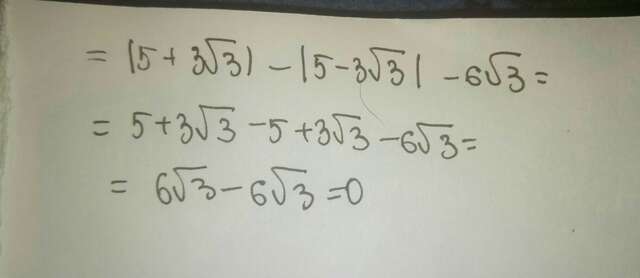 = |5 + 3√3| - |5 - 3√3| - 6√3 =
= 5 + 3√3 - 5 + 3√3 - 6√3 =
= 6√3 - 6√3 = 0